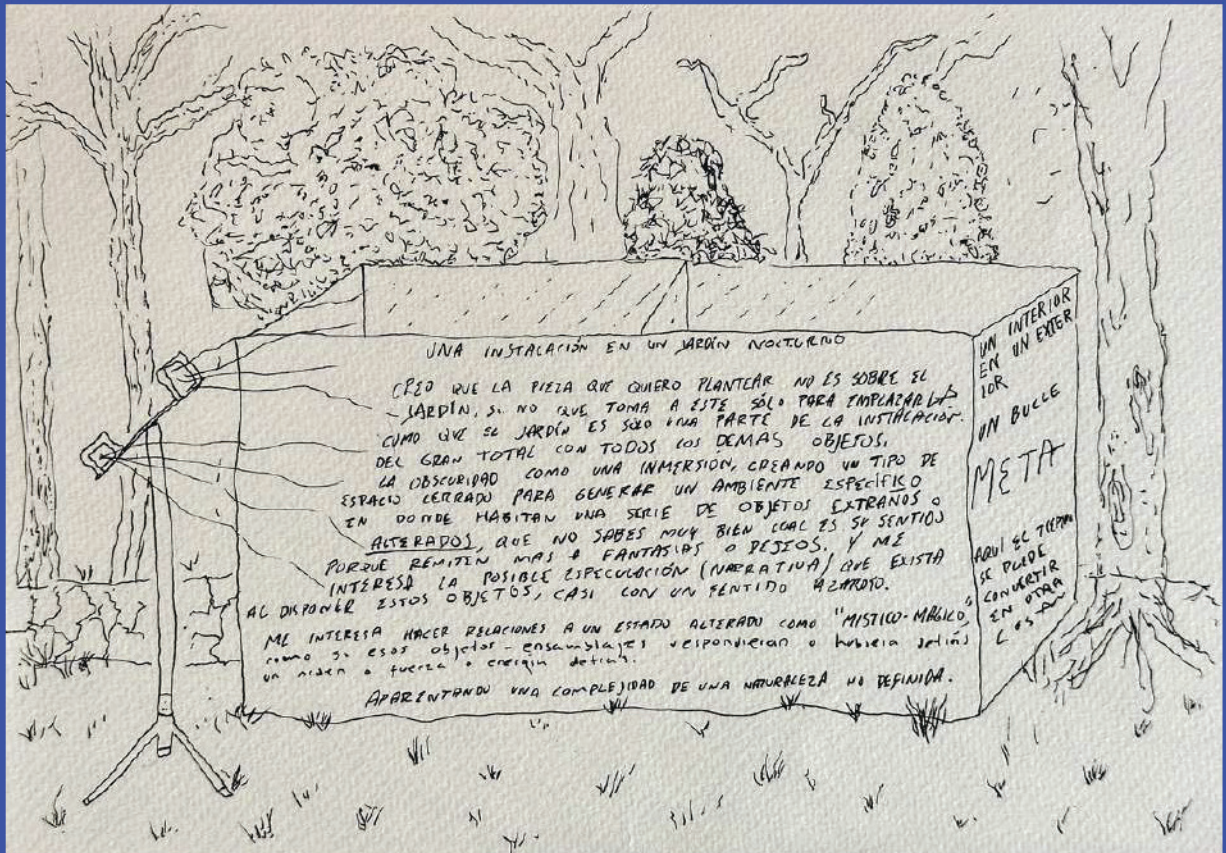 UNA INSTALACIÓN EN UN JARDÍN NOCTURNO
CREO QUE LA PIEZA QUE QUIERO PLANTEAR NO ES SOBRE EL
JARDÍN, SI NO QUE TOMA A ESTE SÓLO PARA EMPLAZARLA
COMO QUE EL JARDÍN ES SOLO UNA PARTE DE LA INSTALACIÓN.
DEL GRAN TOTAL CON TODOS LOS DEMAS OBJETOS.
LA OBSCURIDAD COMO UNA INMERSIÓN, CREANDO UN TIPO DE
ESPACIO CERRADO PARA GENERAR UN AMBIENTE ESPECÍFICO
EN DONDE HABITAN UNA SERIE DE OBJETOS EXTRAÑOS O
ALTERADOS, QUE NO SABES MUY BIEN CUAL ES SU SENTIDO
PORQUE REMITEN MAS A FANTASIAS O DESEOS. Y ME
INTERESA LA POSIBLE ESPECULACIÓN (NARRATIVA) QUE EXISTA
AL DISPONER ESTOS OBJETOS, CASI CON UN SENTIDO AZAROSO.
ME INTERESA HACER RELACIONES A UN ESTADO ALTERADO COMO "MISTICO-MÁGICO,"
como si esos objetos-ensamblajes respondieran o hubiera detrás
un orden o fuerza o energia detrás.
APARENTANDO UNA COMPLEJIDAD DE UNA NATURALEZA NO DEFINIDA.
UN INTERIOR
EN UN EXTER
IOR
UN BUCLE
META
AQUÍ EL TIEMPO
SE PUEDE
CONVERTIR
EN OTRA